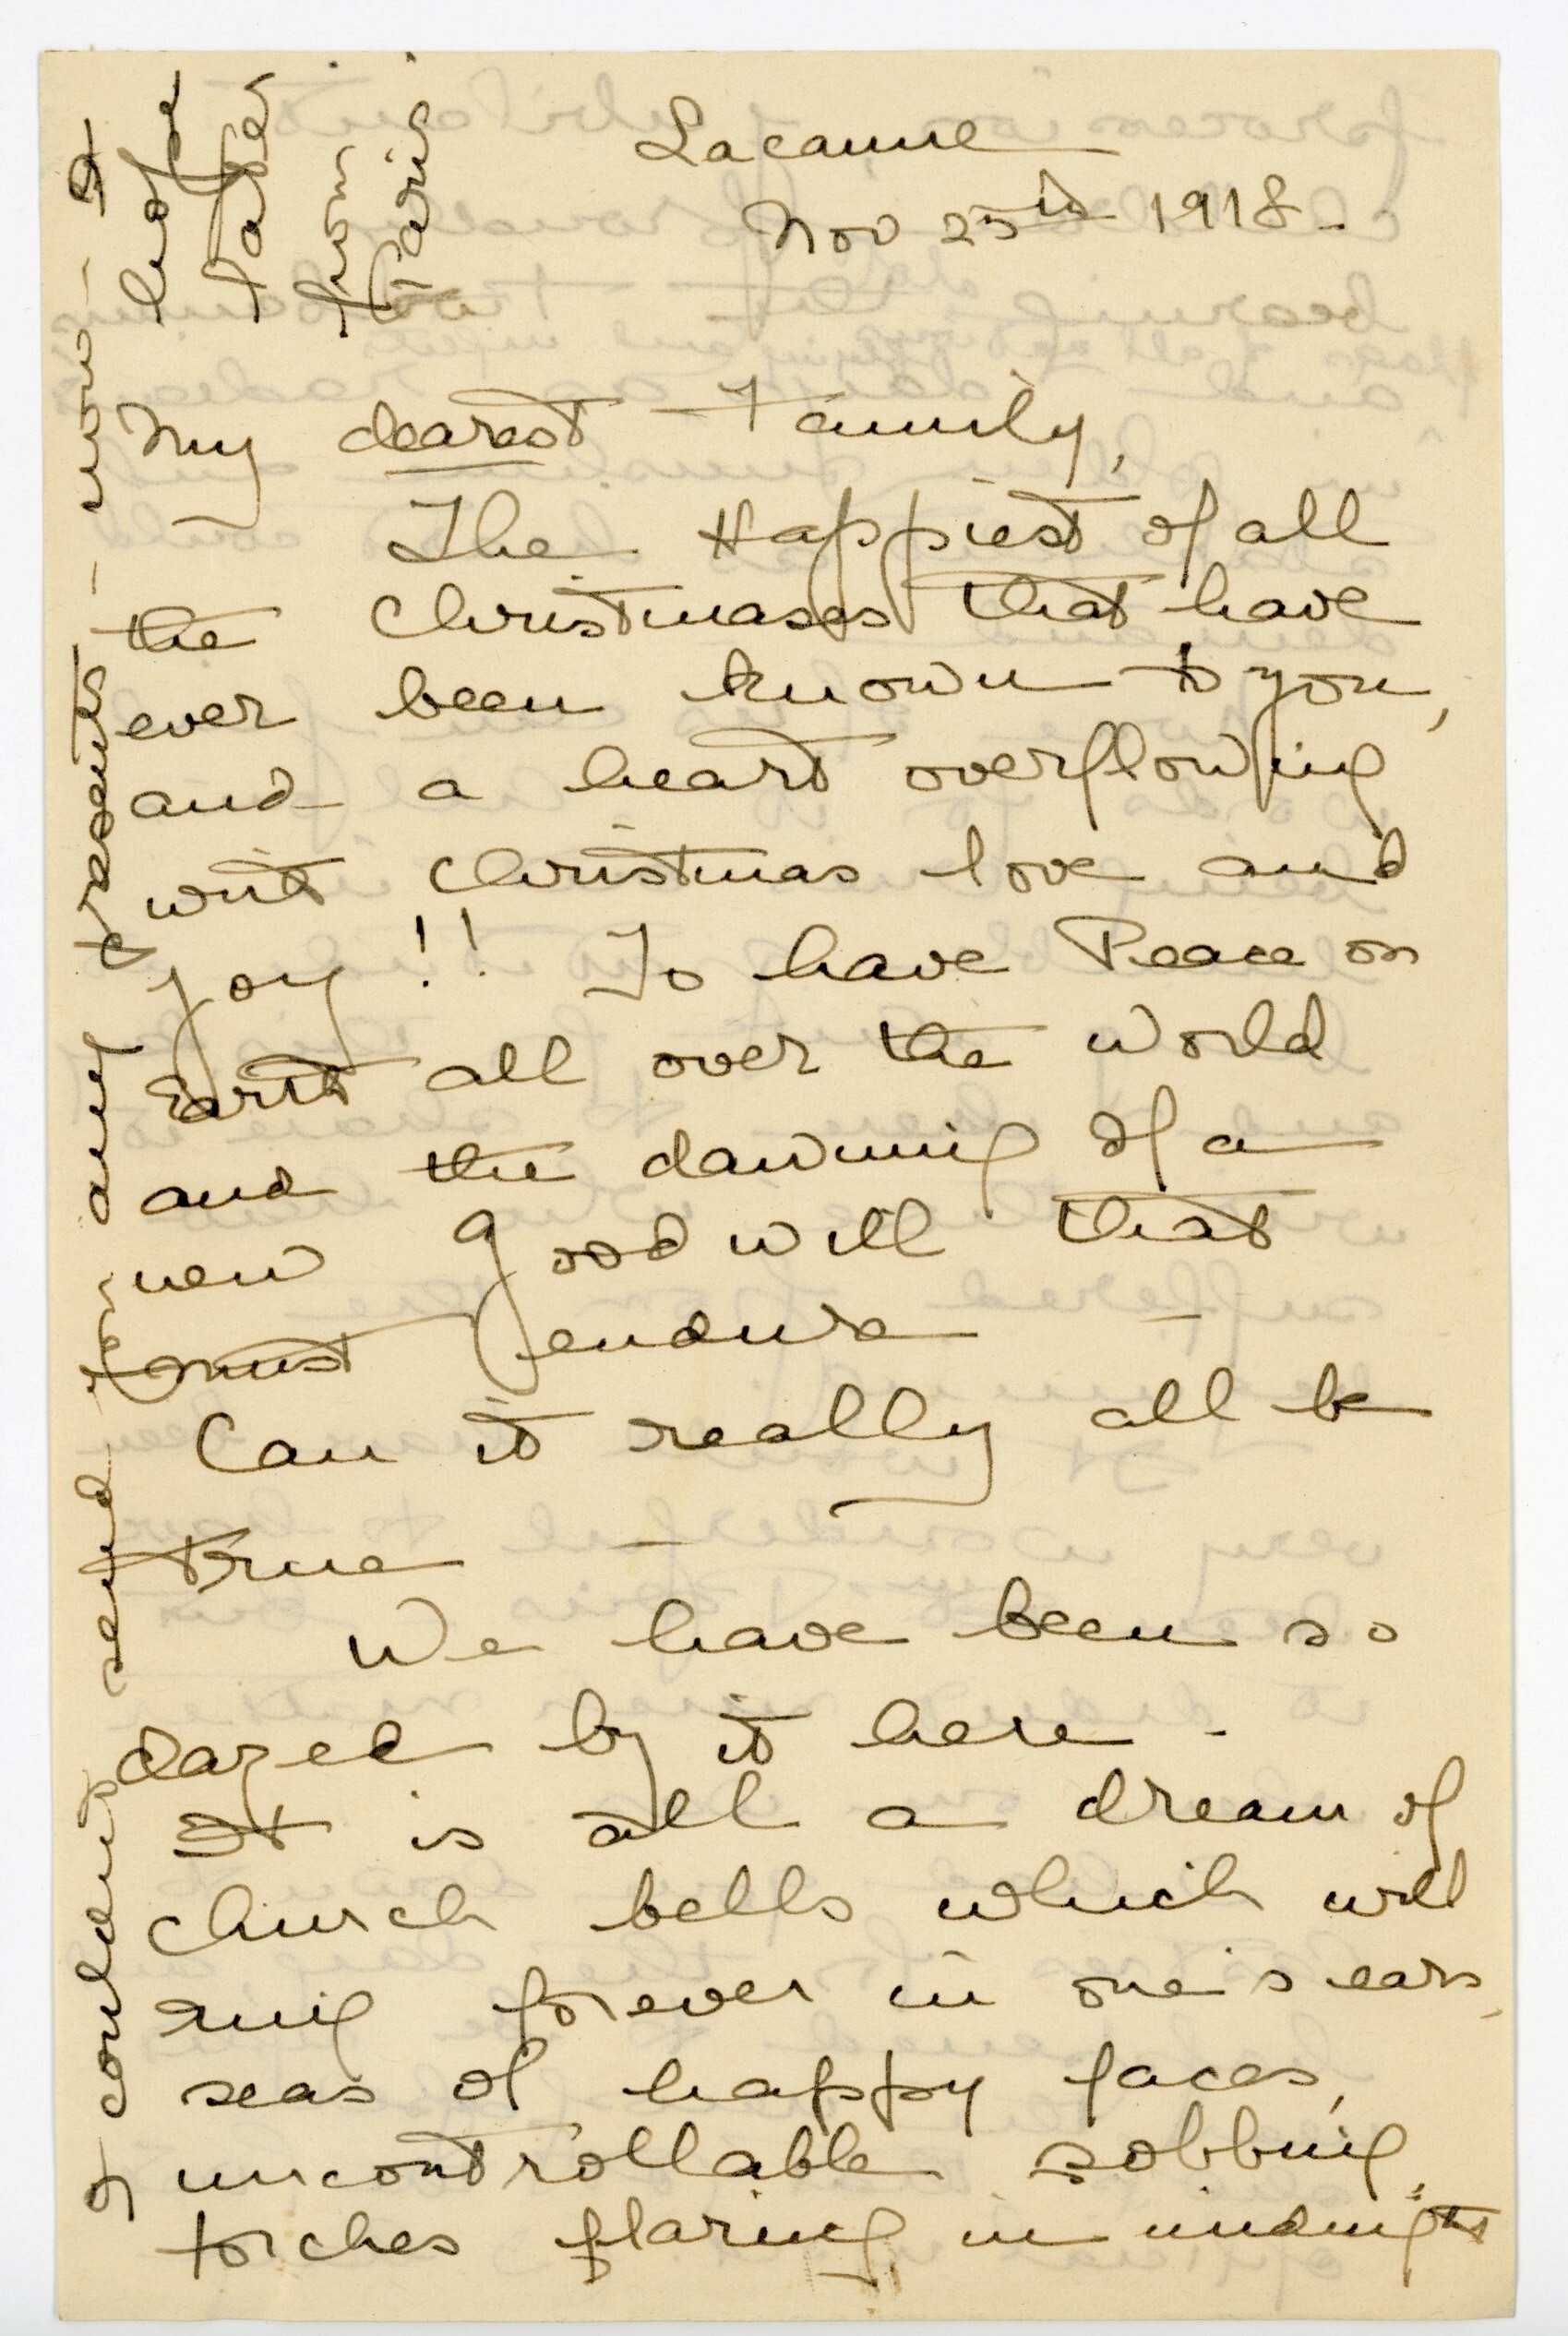 Lacaune
Nov 25th 1918-
My dearest Family,
The Happiest of all
the Christmases that have
ever been known to you,
and a heart overflowing
with Christmas love and
joy!! To have Peace on
Earth all over the world
and the dawning of a
new good will that
must endure -
Can it really all be
true -
We have been so
dazed by it here -
It is all a dream of
church bells which will
ring forever in one's ears,
seas of happy faces,
uncontrollable sobbing,
torches flaring in midnight
I couldn't send you any presents - now - I
hope
later
from
Paris